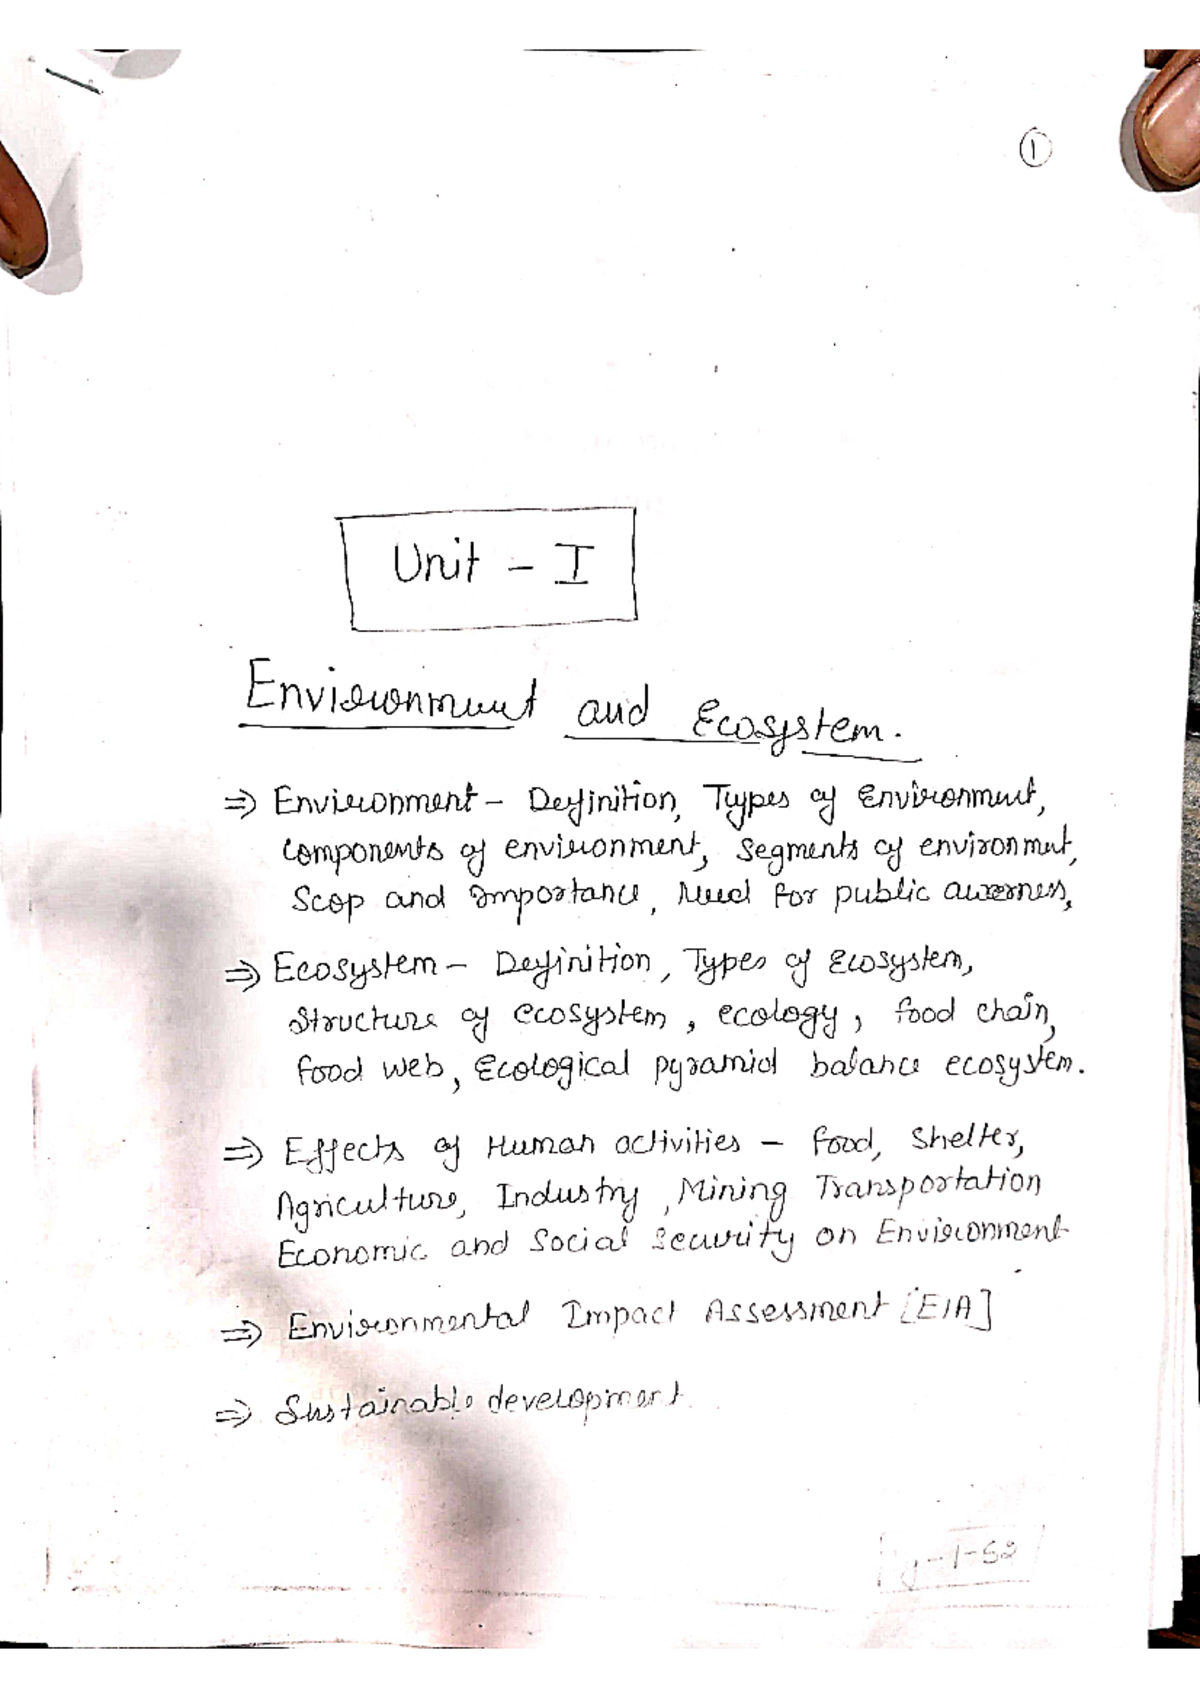 1
Unit - I
Environment and Ecosystem.
⇒ Environment - Definition, Types of Environment,
components of environment, segments of environment,
Scop and Importance, Need for public awerness,
⇒ Ecosystem - Definition, Types of Ecosystem,
Structure of ecosystem, ecology, food chain,
food web, Ecological pyramid balance ecosystem.
⇒ Effects of Human activities - food, Shelter,
Agriculture, Industry, Mining Transportation
Economic and Social Security on Environment
⇒ Environmental Impact Assessment [EIA]
⇒ Sustainable development
-1-52